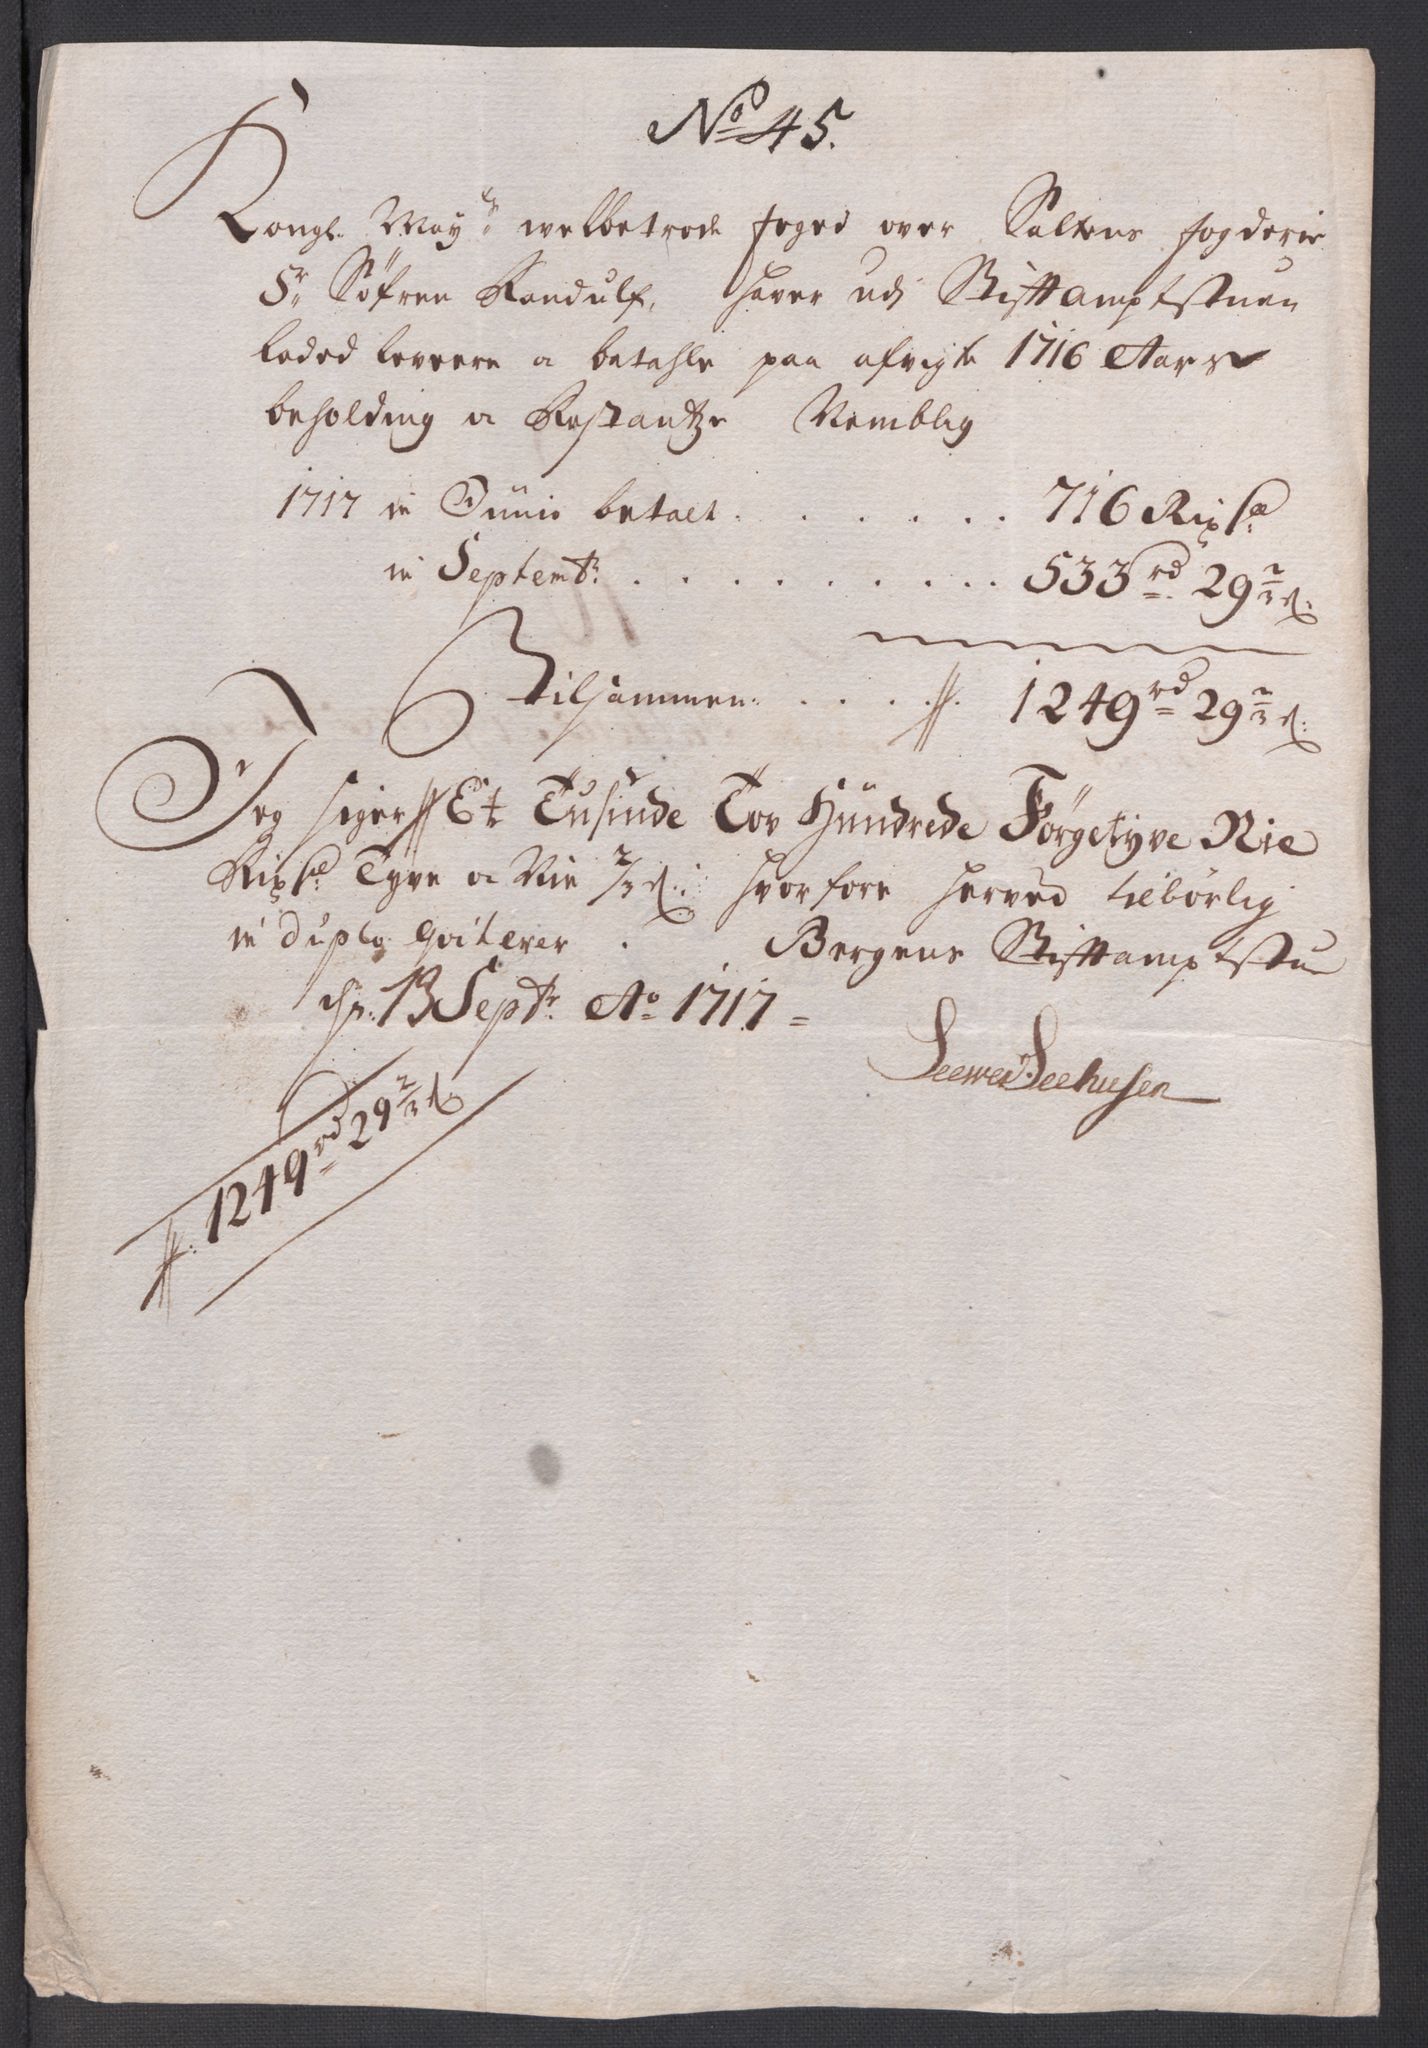 No 45.
Kongl. May.ts welbetrode foged over Saltens fogderie
Sr Söfren Randulf, haver udj Stifttamptstuen
laded levere a betahle paa afvigte 1716 Aars
beholding a Restantze Nemblig
1717 in Junio betalt . . . . . . 716 Rixdl
in Septembr: . . . . . . . . . 533 rd 29 2/3 s:
Tilsammen: . . . . 1249 rd 29 2/3 s:
Jeg siger Et Tusinde Tov Hündrede Förgetyve Nie
Rixdl Tyve a Nie 2/3 s: hvorfore herved tilbörlig
in duplo qviterer. Bergens Stifttamptstue
dn: 13 Septr: Ao 1717 =
Seewer Seehusen
1249 rd 29 2/3 s